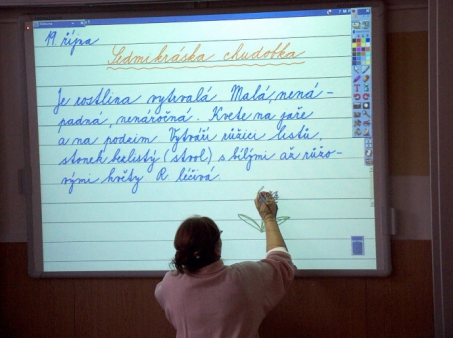 19. října
Sedmikráska chudobka
Je rostlina vytrvalá. Malá, nená-
padná, nenáročná. Kvete na jaře
a na podzim. Vytváří růžici listů,
stonek bezlistý (stvol), s bílými až růžo-
vými květy. R. léčivá.